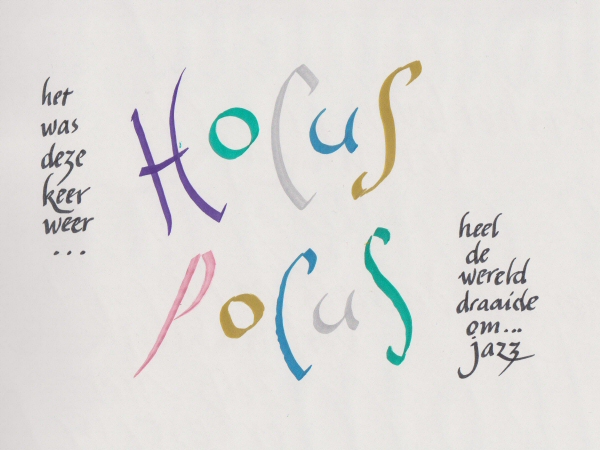 het
was
deze
keer
weer
...
HOCUS
POCUS
heel
de
wereld
draaide
om...
jazz